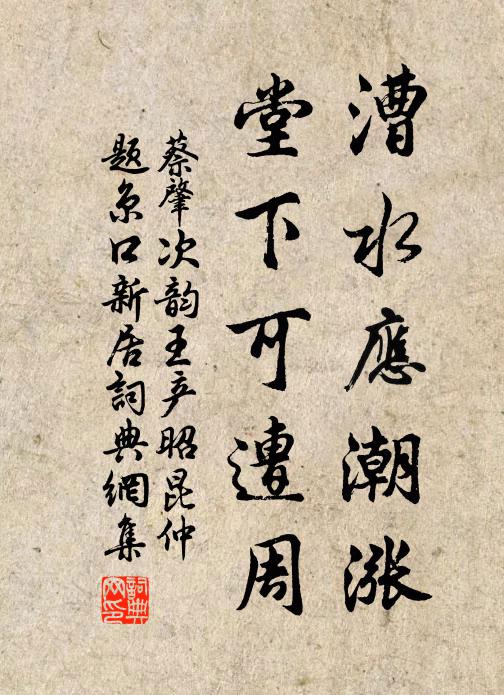 漕水應潮漲
堂下可遭周
蔡肇次韵王彦昭昆仲
题京口新居詞典網集
詞典
网印